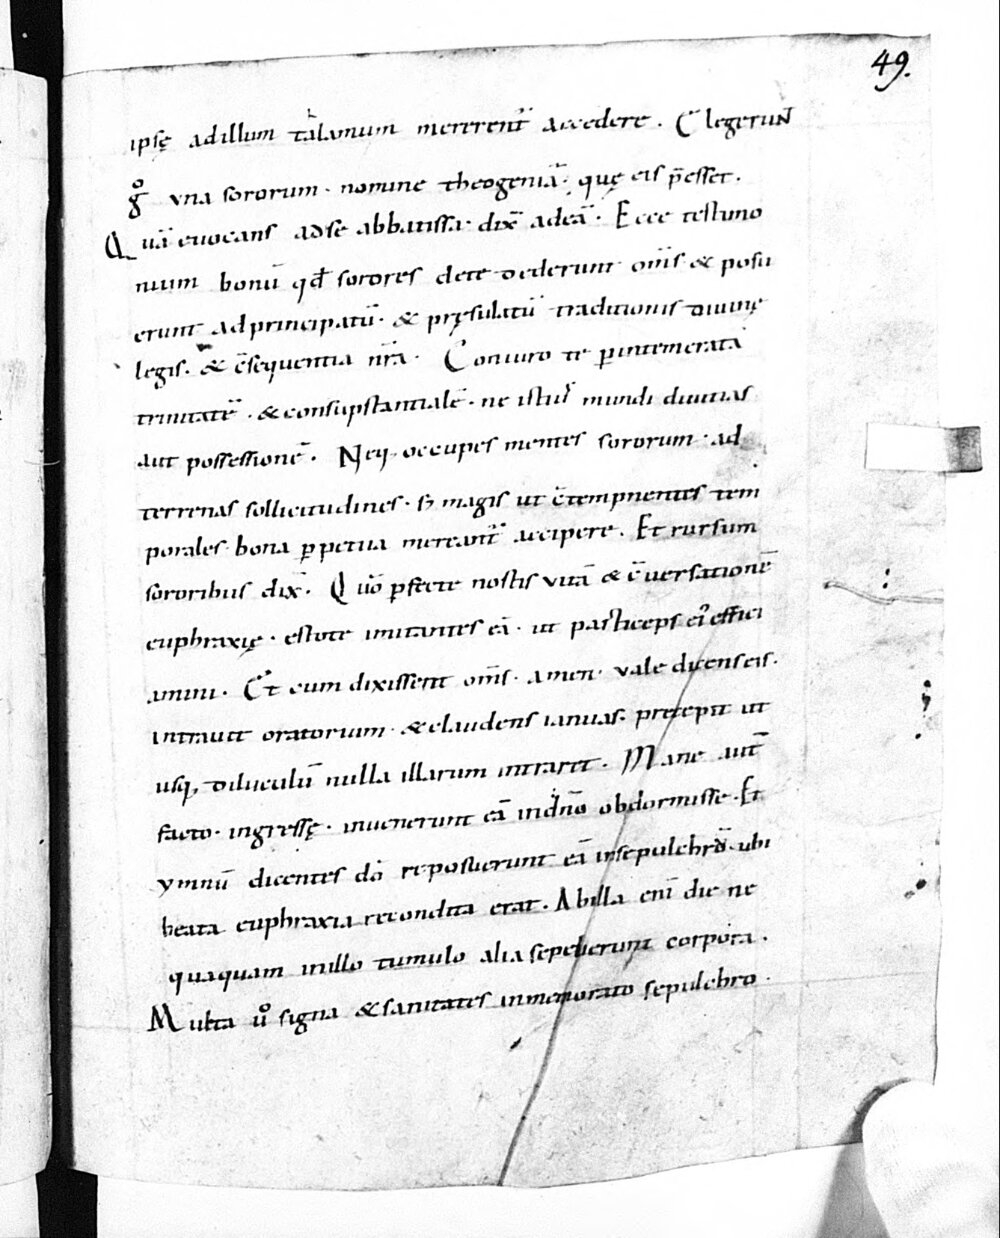 49.
ipsę adillum tałamum mererent̄ accedere. ElegeruN
gͦ vna sororum. nomine theogeniā. quę eis p̄esset.
Quā euocans adse abbatissa. dix̄ adeā. Ecce testimo
nium bonū qđ sorores dete dederunt om̄s & posu
erunt adprincipatū. & pręsulatū traditionis diuinę
legis. & c̄sequentia nr̄a. Coniuro te ꝑintemeratā
trinitatē. & consupstantialē. ne istiuſ mundi diuitias
aut possessionē. Neq; occupes mentes sororum. ad
terrenas sollicitudines. s; magis ut c̄tempnentes tem
porales bona ꝑpetua mereant̄ accipere. Et rursum
sororibus dix̄. Quo ꝑfecte nostis vitā & c̄uersationē
euphraxię. estote imitantes eā. ut particeps ei᾽ effici
amini. Et cum dixissent om̄s. amen. vale dicens eis.
intrauit oratorium. & claudens ianuas. precepit ut
usq; diluculū nulla illarum intraret. Mane aut̄
facto. ingressę. inuenerunt eā indn̄o obdormisse. Et
ymnū dicentes dō reposuerunt eā insepulchro. ubi
beata euphraxia recondita erat. Abilla eni die ne
quaquam inillo tumulo alia sepelierunt corpora.
Multa uͦ signa & sanitates inmemorato sepulchro.